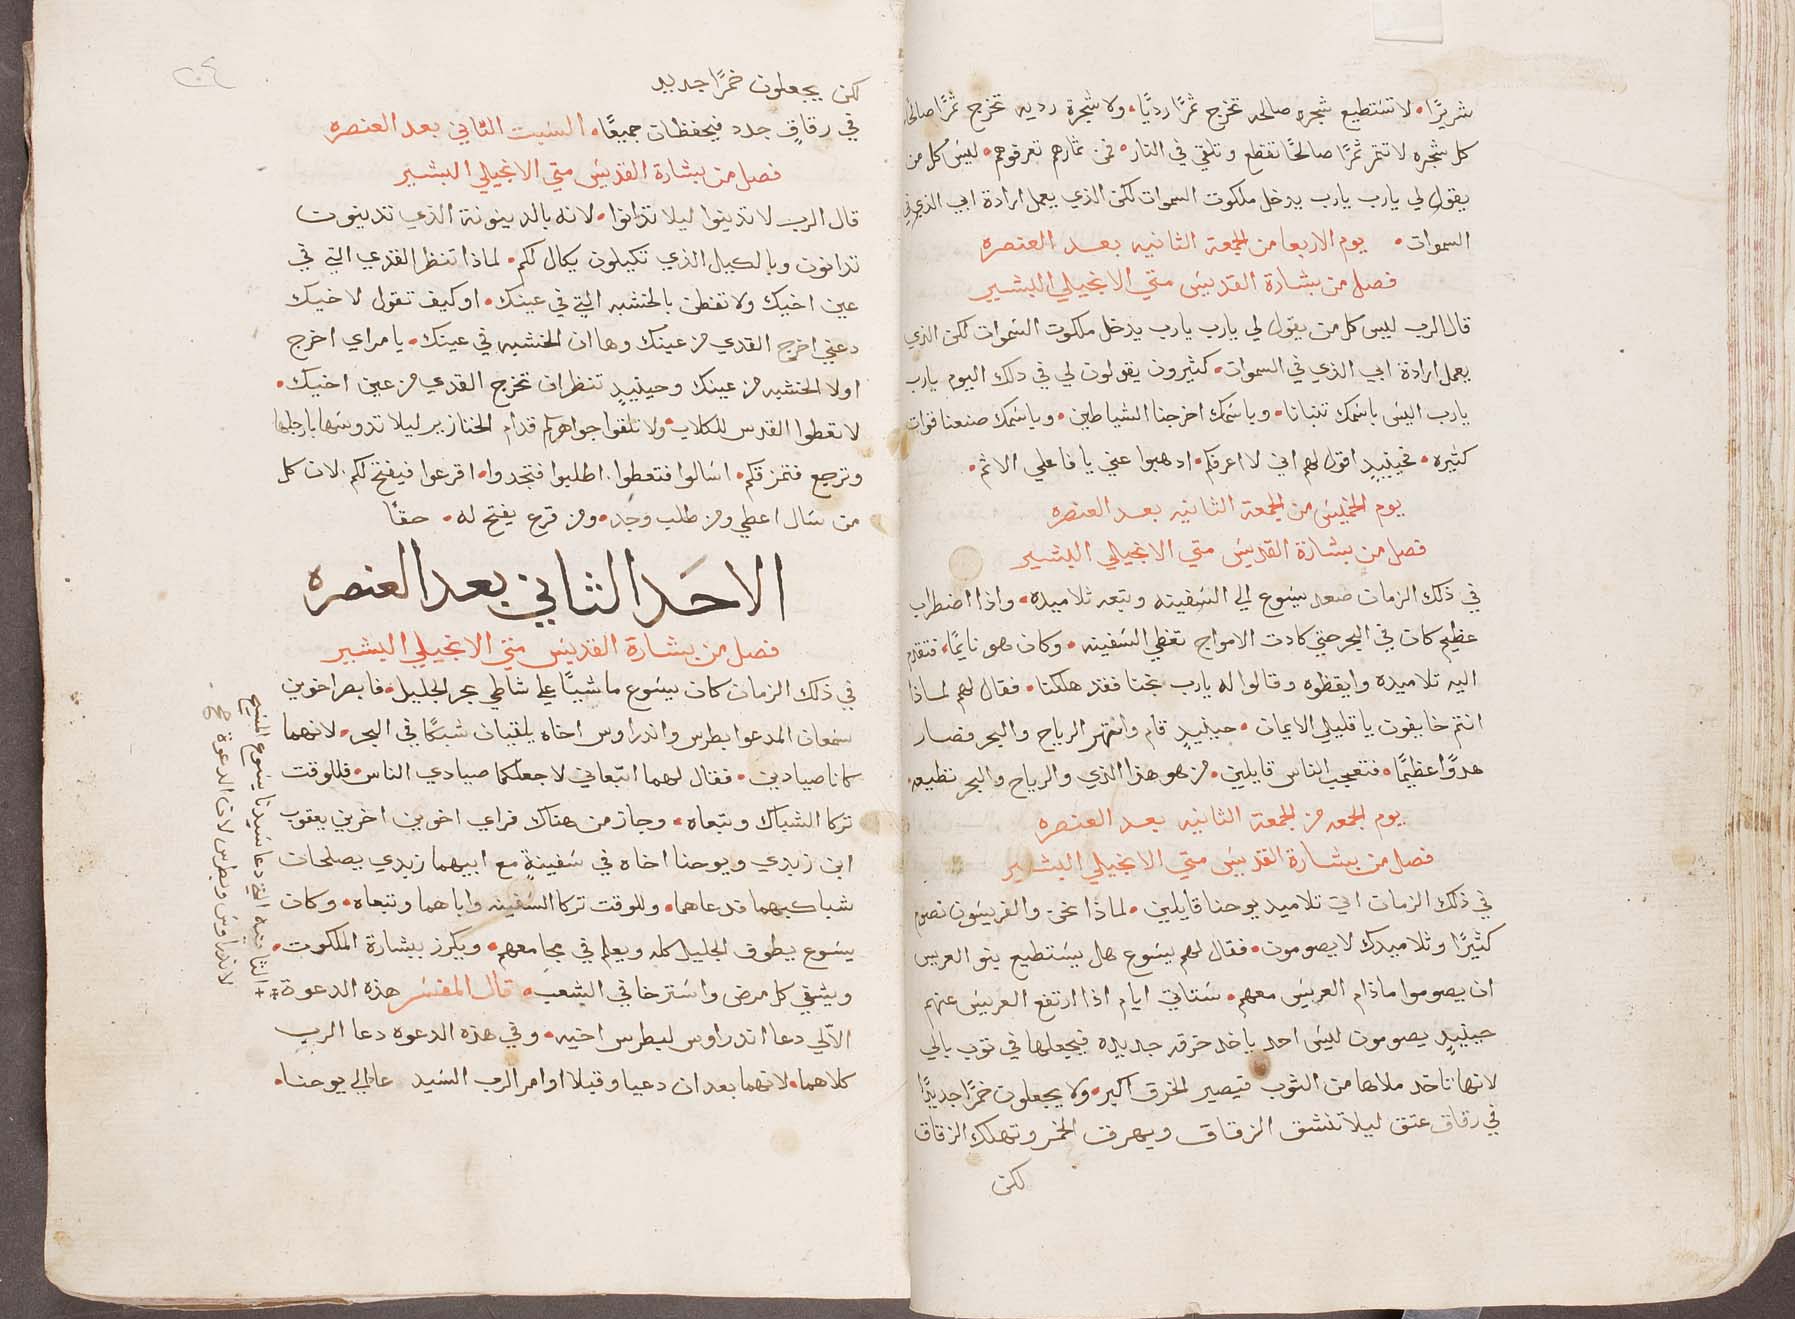 شريرًا • لا تستطيع شجره صالحه تخرج ثمرًا رديًا • ولا شجرة رديه تخرج ثمرًا صالحًا
كل شجره لا تثمر ثمرًا صالحًا تقطع وتلقي في النار • فمن ثمارهم تعرفوهم • ليس كل من
يقول لي يارب يارب يدخل ملكوت السموات لكن الذي يعمل ارادة ابي الذي في
السموات • يوم الاربعا من الجمعة الثانيه بعد العنصره
فصل من بشارة القديس متي الانجيلي البشير
قال الرب ليس كل من يقول لي يارب يارب يدخل ملكوت السموات لكن الذي
يعمل ارادة ابي الذي في السموات • كثيرون يقولون لي في دلك اليوم يارب
يارب اليس باسمك تنبانا • وباسمك اخرجنا الشياطين • وباسمك صنعنا قوات
كثيره • فحينيدٍ اقول لهم اني لا اعرفكم • ادهبوا عني يا فاعلي الاثم •
يوم الخميس من الجمعة الثانيه بعد العنصره
فصل من بشارة القديس متي الانجيلي البشير
في ذلك الزمان صعد يسوع الي السفينه وتبعه تلاميده • واذا اضطراب
عظيم كان في البحر حتي كادت الامواج تغطي السفينه • وكان هو نايمًا • فتقدم
اليه تلاميده وايقظوه وقالوا له يارب نجنا فقد هلكنا • فقال لهم لماذا
انتم خايفون يا قليلي الايمان • حينيدٍ قام وانتهر الرياح والبحر فصار
هدوًا عظيمًا • فتعجب الناس قايلين • من هو هذا الذي والرياح والبحر تطيعه •
يوم الجمعه من الجمعة الثانيه بعد العنصره
فصل من بشارة القديس متي الانجيلي البشير
في ذلك الزمان اتي تلاميد يوحنا قايلين • لماذا نحن والفريسون نصوم
كثيرًا وتلاميدك لا يصومون • فقال لهم يسوع هل يستطيع بنو العريس
ان يصوموا ماذام العريس معهم • ستاتي ايام اذا ارتفع العريس عنهم
حينيدٍ يصومون ليس احد ياخد خرقه جديده فيجعلها في توب بالي
لانها تاخد ملاها من الثوب فيصير الخرق اكبر • ولا يجعلون خمرًا جديدًا
في رقاق عتق ليلا تنشق الزقاق ويهرق الخمر وتهلك الزقاق
لكن
٢٠٤
لكن يجعلون خمرًا جديد
في رقاقٍ جدد فيحفظان جميعًا • السبت الثاني بعد العنصره
فصل من بشارة القديس متي الانجيلي البشير
قال الرب لا تدينوا ليلا تدانوا • لانه بالدينونة الذي تدينون
تدانون وبالكيل الذي تكيلون يكال لكم • لماذا تنظر القدي التي في
عين اخيك ولا تفطن بالخشبه التي في عينك • او كيف تقول لاخيك
دعني اخرج القدي من عينك وها ان الخشبه في عينك • يا مراي اخرج
اولا الخشبه من عينك وحينيدٍ تنظر ان تخرج القدي من عين اخيك •
لا تعطوا القدس للكلاب • ولا تلقوا جواهركم قدام الخنازير ليلا تدوسها بارجلها
وترجع فتمزقكم • اسالوا فتعطوا . اطلبوا فتجدوا • اقرعوا فيفتح لكم . لان كل
من سال اعطي ومن طلب وجد • ومن قرع يفتح له • حقًا
الاحد الثاني بعد العنصره
فصل من بشارة القديس متي الانجيلي البشير
في ذلك الزمان كان يسوع ماشيًا علي شاطي بحر الجليل • فابصر اخوين
سمعان المدعوا بطرس واندراوس اخاه يلقيان شبكًا في البحر • لانهما
كانا صيادين • فقال لهما اتبعاني لاجعلكما صيادي الناس • فللوقت
تركا الشباك وتبعاه • وجاز من هناك فراي اخوين اخرين يعقوب
ابن زبدي ويوحنا اخاه في سفينةٍ مع ابيهما زبدي يصلحان
شباكيهما فدعاهما • وللوقت تركا السفينه واباهما وتبعاه • وكان
يسوع يطوف الجليل كله ويعلم في مجامعهم • ويكرز ببشارة الملكوت •
ويشفي كل مرض واسترخا في الشعب • قال المفسر هذه الدعوة
الآلي دعا اندراوس لبطرس اخيه • وفي هذه الدعوه دعا الرب
كلاهما • لانهما بعد ان دعيا وقبلا اوامر الرب السيد عاد الي يوحنا •
الثانيه التي دعا سيدنا يسوع المسيح
لاندراوس وبطرس لان الدعوة